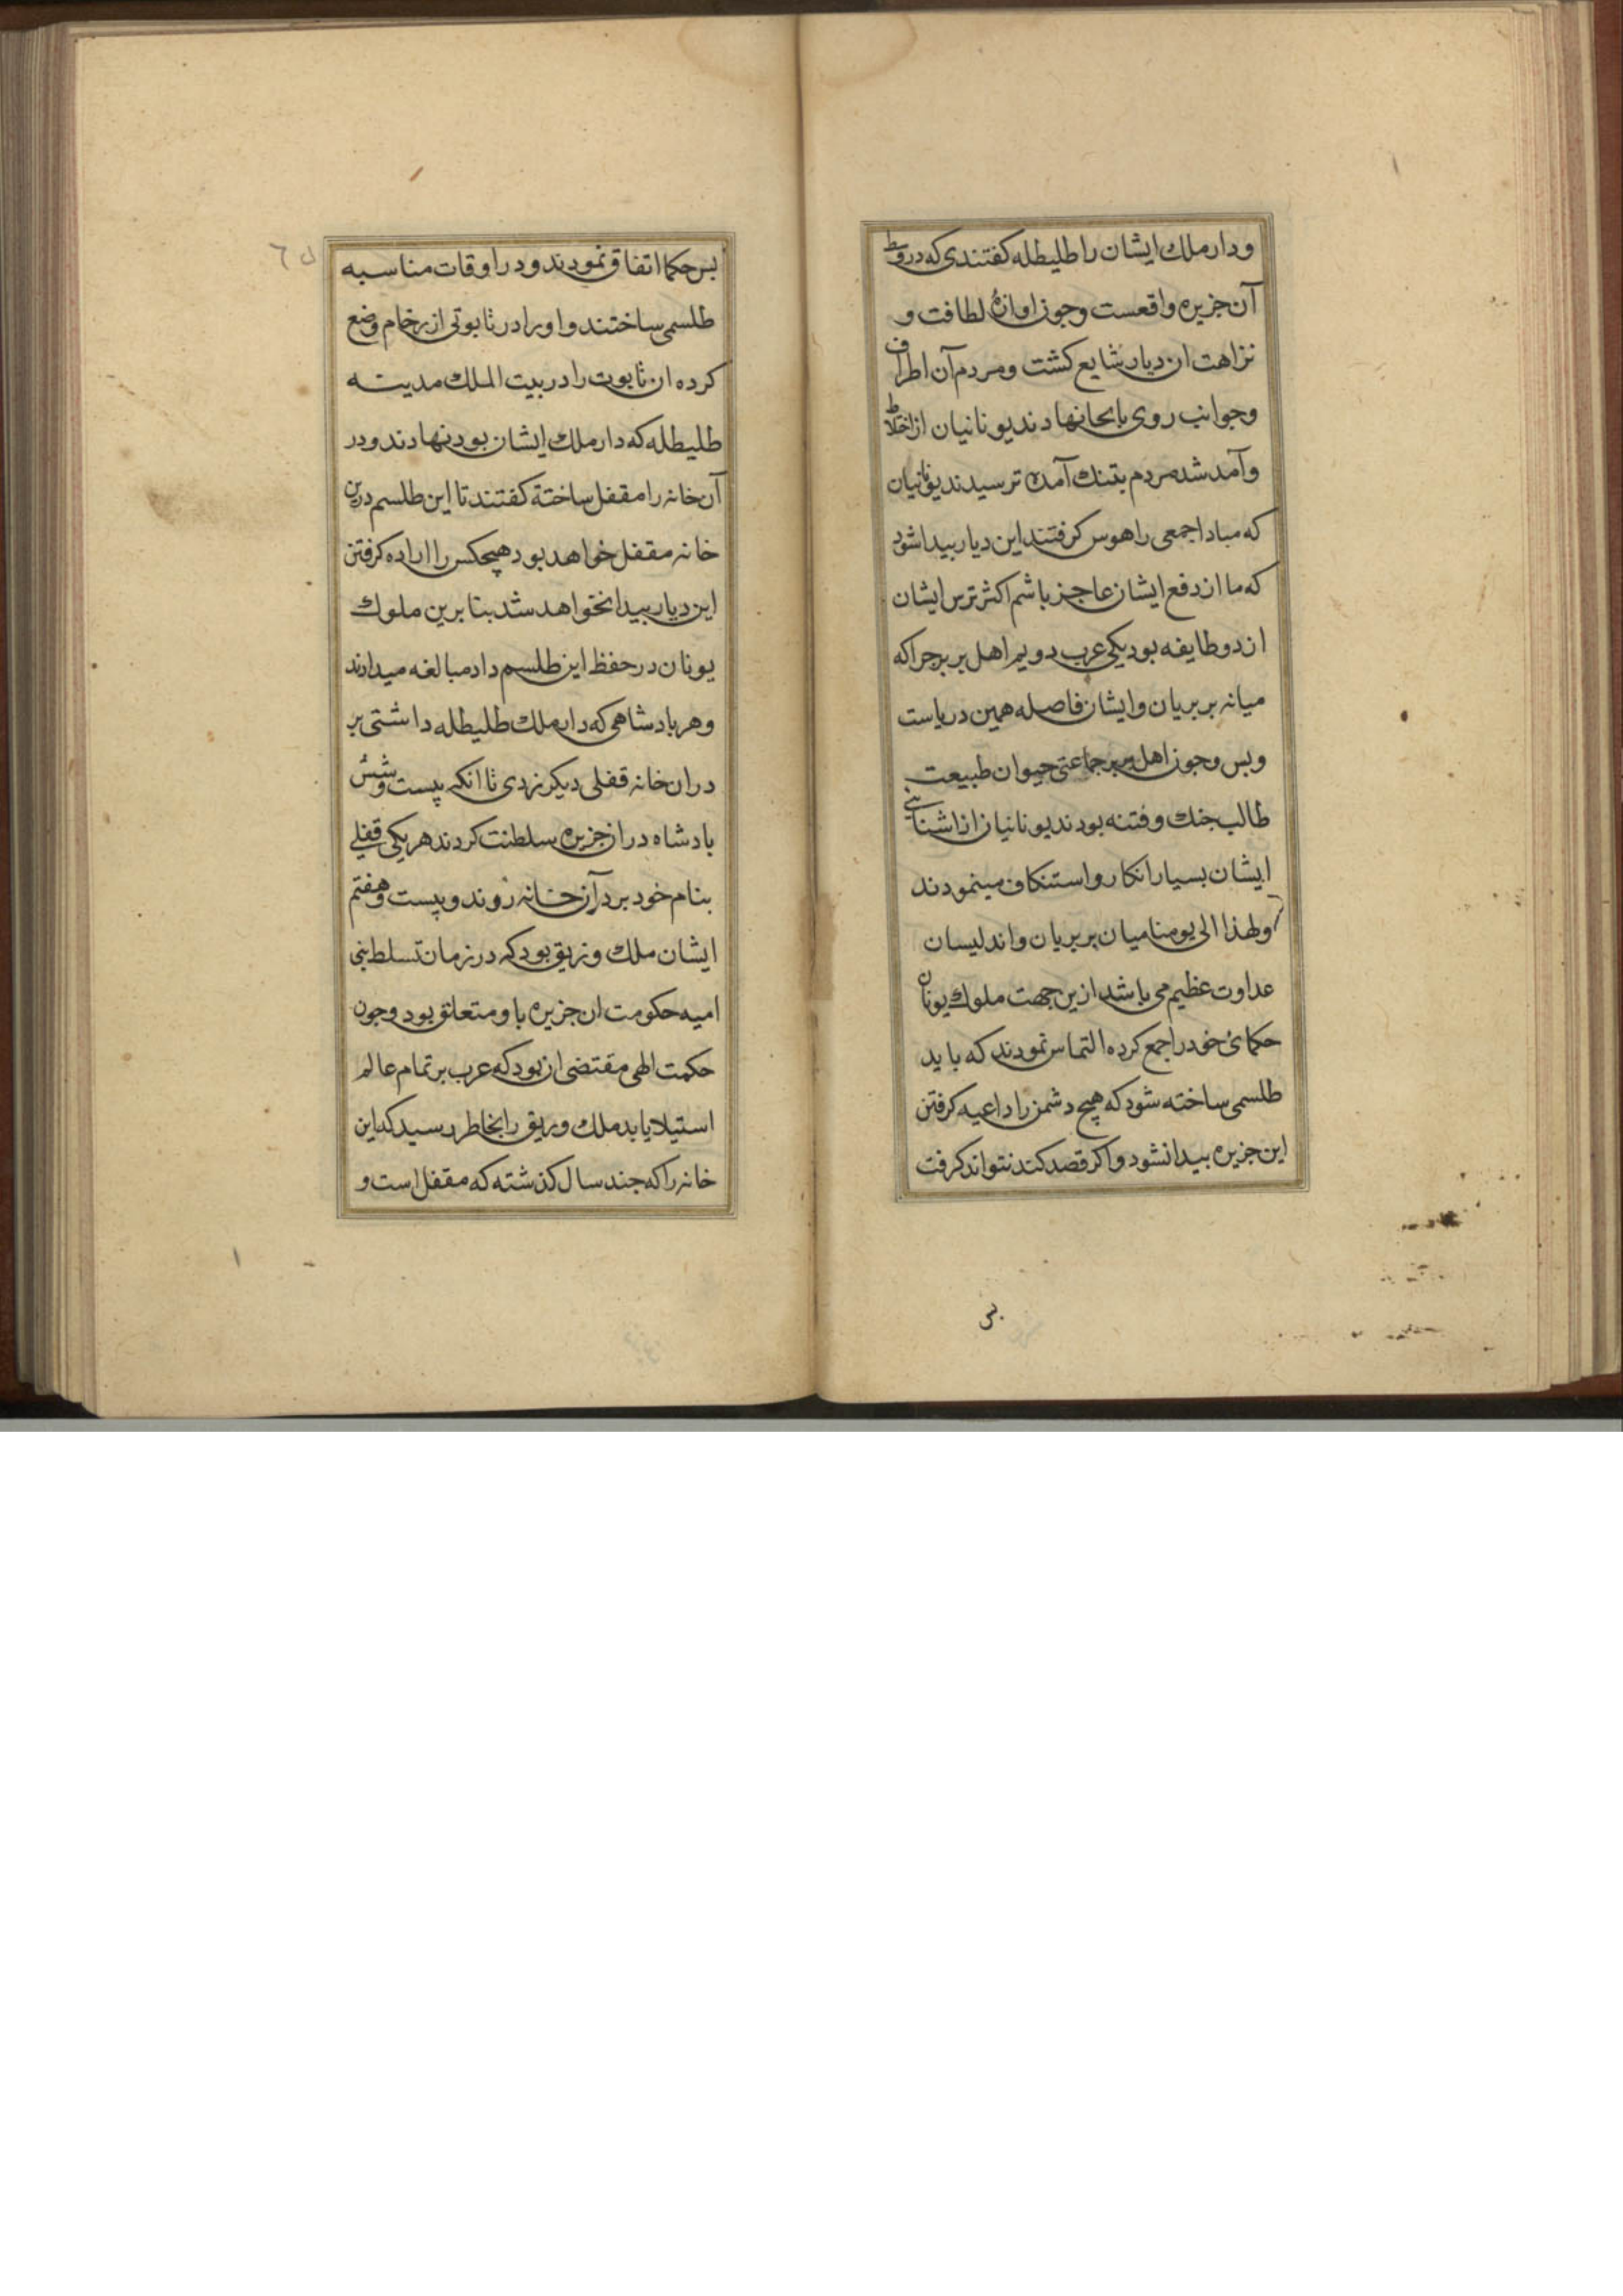 ودار ملك ایشان را طلیطله کفتندی که در وسط
آن جزیره واقعست وجون اوازهٔ لطافت و
نزاهت ان دیار شایع کشت ومردم آن اطراف
وجوانب روی بانجا نهادند یونانیان از اختلاط
وآمد شد مردم بتنك آمده ترسیدند یونانیان
که مبادا جمعی را هوس کرفتند این دیار بیدا شود
که ما از دفع ایشان عاجز باشم اکثر ترس ایشان
از دو طایفه بود یکی عرب دویم اهل بربر جرا که
میانه بربریان وایشان فاصله همین دریاست
وبس وجون اهل بربر جماعتی حیوان طبیعت
طالب جنك وفتنه بودند یونانیان از اشنایی
ایشان بسیار انکار واستنکاف مینمودند
ولهذا الی یومنا میان بربریان واندلیسان
عداوت عظیم می باشد ازین جهت ملوك یونان
حکمائ خود را جمع کرده التماس نمودند که باید
طلسمی ساخته شود که هیچ دشمن را داعیه کرفتن
این جزیره بیدا نشود واکر قصد کند نتواند کرفت
بس
بس حکما اتفاق نمودند ودر اوقات مناسبه
طلسمی ساختند واورا در تابوتی از رخام وضع
کرده ان تابوت را در بیت الملك مدینه
طلیطله که دار ملك ایشان بود نهادند ودر
آن خانه را مقفل ساختة کفتند تا این طلسم درین
خانه مقفل خواهد بود هیچکس را اراده کرفتن
این دیار بیدا نخواهد شد بنا برین ملوك
یونان در حفظ این طلسم داد مبالغه میدادند
وهر بادشاهی که دار ملك طلیطله داشتی بر
در ان خانه قفلی دیکر زدی تا انکه بیست وشش
بادشاه در ان جزیره سلطنت کردند هر یکی قفلی
بنام خود بر در آن خانه زوند وبیست وهفتم
ایشان ملك وزریق بود که در زمان تسلط بنی
امیه حکومت ان جزیره باو متعلق بود وجون
حکمت الهی مقتضی ان بود که عرب بر تمام عالم
استیلا یابد ملك وریق را بخاطر رسید که این
خانه را که جند سال کذشته که مقفل است و